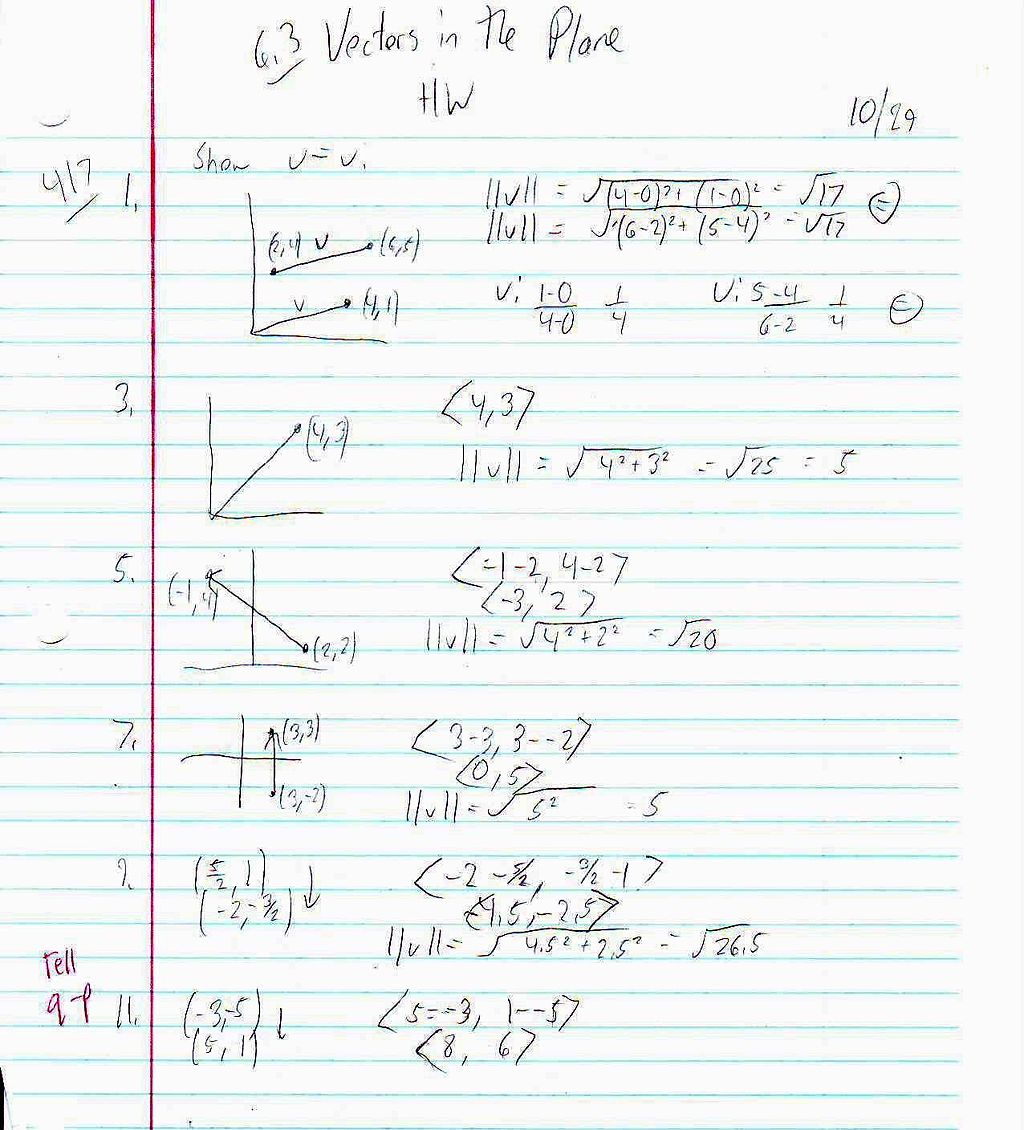 6.3 Vectors in the Plane
HW
10/29
417
Show u = v.
1.
(2,4) u (6,5)
v (4,1)
||v|| = √(4-0)²+(1-0)² = √17
||u|| = √(6-2)²+(5-4)² = √17 =
v: 1-0/4-0 1/4 u: 5-4/6-2 1/4 =
3.
(4,3)
<4,3>
||v|| = √4²+3² = √25 = 5
5.
(-1,4)
(2,2)
<-1-2, 4-2>
<-3, 2>
||v|| = √4²+2² = √20
7.
(3,3)
(3,-2)
<3-3, 3--2>
<0,5>
||v|| = √5² = 5
9.
(5/2, 1)
(-2,-3/2) ↓
<-2-5/2, -3/2-1>
<-4.5,-2.5>
||v|| = √4.5²+2.5² = √26.5
11.
(-3,-5)
(5, 1) ↓
<5--3, 1--5>
<8, 6>